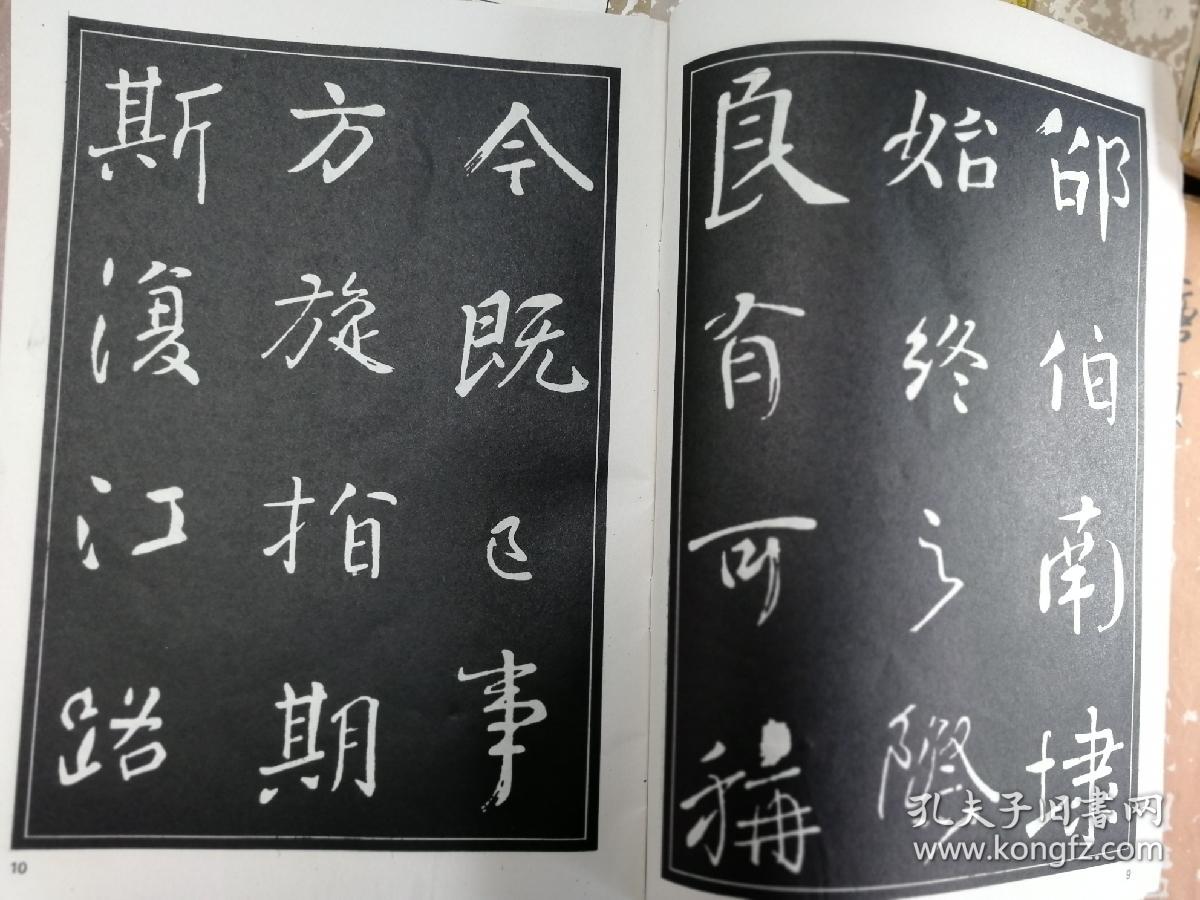 邵伯南埭
始終之際
良有可稱
今既已事
方旋指期
斯復江路
9
10
孔夫子旧书网
www.kongfz.com